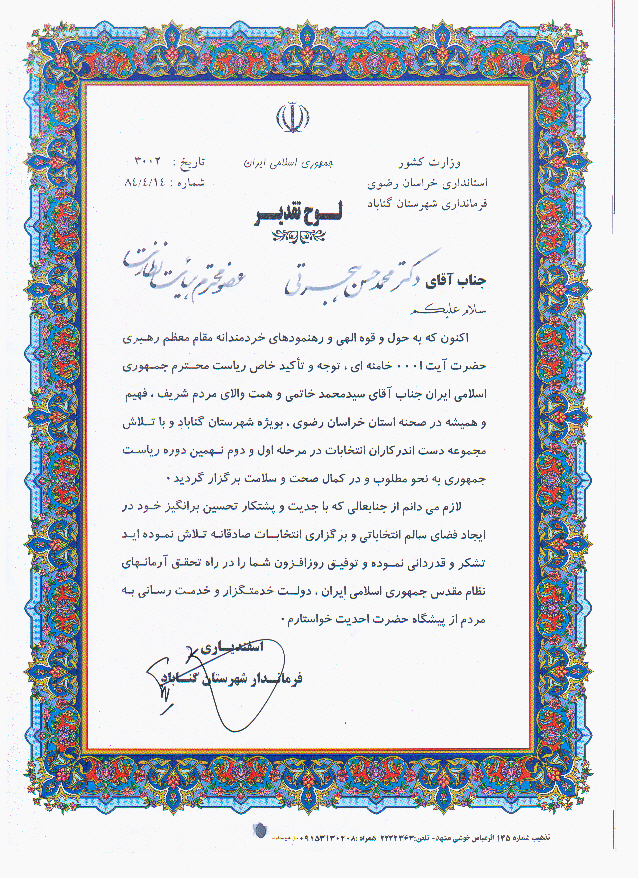 وزارت کشور
استانداری خراسان رضوی
فرمانداری شهرستان گناباد
جمهوری اسلامی ایران
تاریخ : ۳۰۰۲
شماره : ۸۴/۴/۱۴
لوح تقدیر
جناب آقای دکتر محمد حسن هجرتی عضو محترم هیئت نظارت
سلام علیکم
اکنون که به حول و قوه الهی و رهنمودهای خردمندانه مقام معظم رهبری
حضرت آیت ا۰۰۰ خامنه ای ، توجه و تأکید خاص ریاست محترم جمهوری
اسلامی ایران جناب آقای سیدمحمد خاتمی و همت والای مردم شریف ، فهیم
و همیشه در صحنه استان خراسان رضوی ، بویژه شهرستان گناباد و با تلاش
مجموعه دست اندرکاران انتخابات در مرحله اول و دوم نهمین دوره ریاست
جمهوری به نحو مطلوب و در کمال صحت و سلامت برگزار گردید ۰
لازم می دانم از جنابعالی که با جدیت و پشتکار تحسین برانگیز خود در
ایجاد فضای سالم انتخاباتی و برگزاری انتخابات صادقانه تلاش نموده اید
تشکر و قدردانی نموده و توفیق روزافزون شما را در راه تحقق آرمانهای
نظام مقدس جمهوری اسلامی ایران ، دولت خدمتگزار و خدمت رسانی به
مردم از پیشگاه حضرت احدیت خواستارم ۰
اسفندیاری
فرماندار شهرستان گناباد
تذهیب شماره ۱۳۵ اثرعباس خوشی مشهد- تلفن:۲۲۲۲۳۶۳ همراه :۰۹۱۵۳۱۳۰۲۰۸